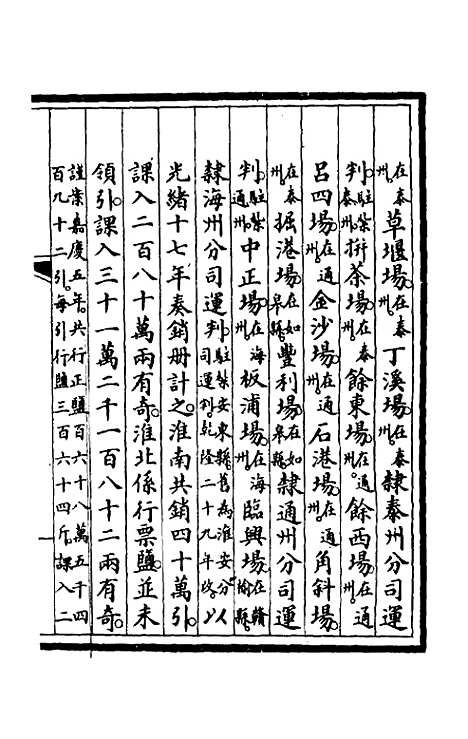 在泰州。草堰場。在泰州。丁溪場。在泰州。隸泰州分司運
判。駐紮泰州。拼茶場。在泰州。餘東場。在通州。餘西場。在通州。
呂四場。在通州。金沙場。在通州。石港場。在通州。角斜場。
在泰州。掘港場。在如皋縣。豐利場。在如皋縣。隸通州分司運
判。駐紮通州。中正場。在海州。板浦場。在海州。臨興場。在贛榆縣。
隸海州分司運判。駐紮安東縣。舊為淮安分司運判。乾隆二十九年改。以
光緒十七年奏銷册計之。淮南共銷四十萬引。
課入二百八十萬兩有奇。淮北係行票鹽。並未
領引。課入三十一萬二千一百八十二兩有奇。
謹案嘉慶五年。共行正鹽百六十八萬五千四
百九十二引。每引行鹽三百六十四斤。課入二